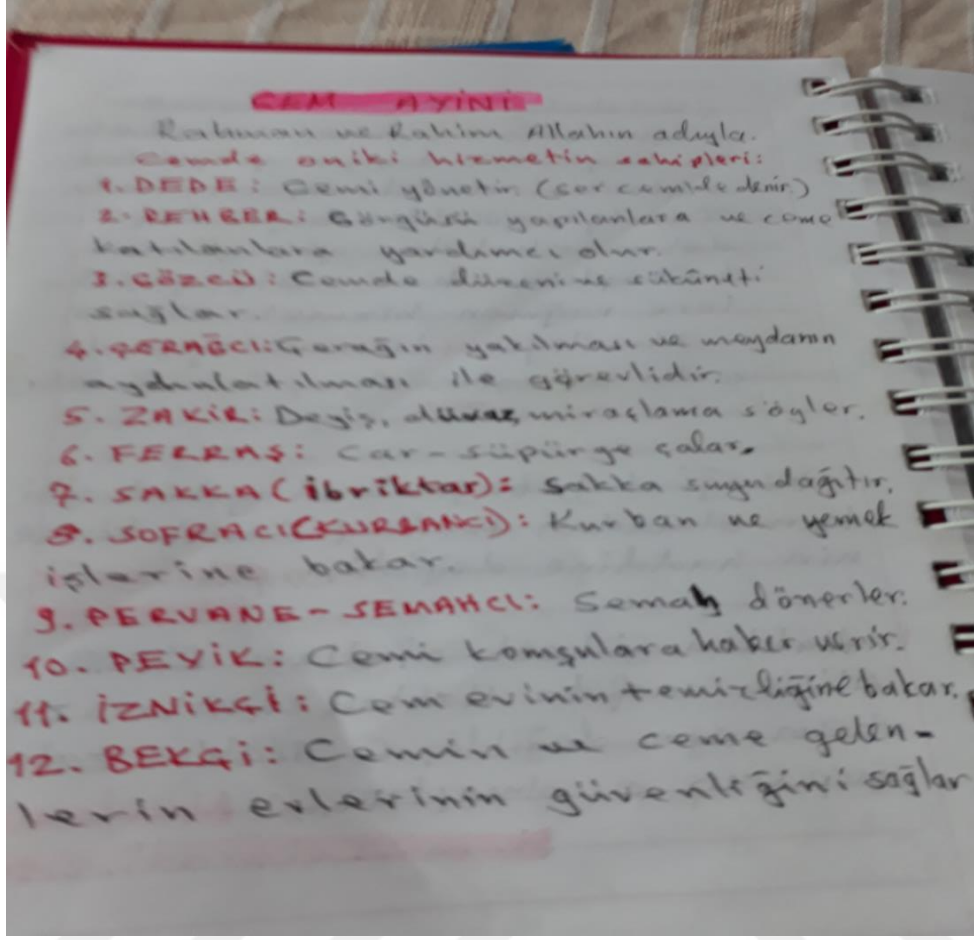 CEM AYİNİ
Rahman ve Rahim Allahın adıyla.
Cemde oniki hizmetin sahipleri:
1. DEDE: Cemi yönetir. (ser cem'de denir.)
2. REHBER: Görgüsü yapılanlara ve ceme
katılanlara yardımcı olur.
3. GÖZCÜ: Cemde düzeni ve sükûneti
sağlar.
4. ÇERAĞCI: Çerağın yakılması ve meydanın
aydınlatılması ile görevlidir.
5. ZAKİR: Deyiş, düvaz, miraçlama söyler.
6. FERRAŞ: Car-süpürge çalar.
7. SAKKA (ibriktar): Sakka suyu dağıtır.
8. SOFRACI (KURBANCI): Kurban ve yemek
işlerine bakar.
9. PERVANE-SEMAHCI: Semah dönerler.
10. PEYİK: Cemi komşulara haber verir.
11. İZNİKÇİ: Cem evinin temizliğine bakar.
12. BEKÇİ: Cemin ve ceme gelen-
lerin evlerinin güvenliğini sağlar